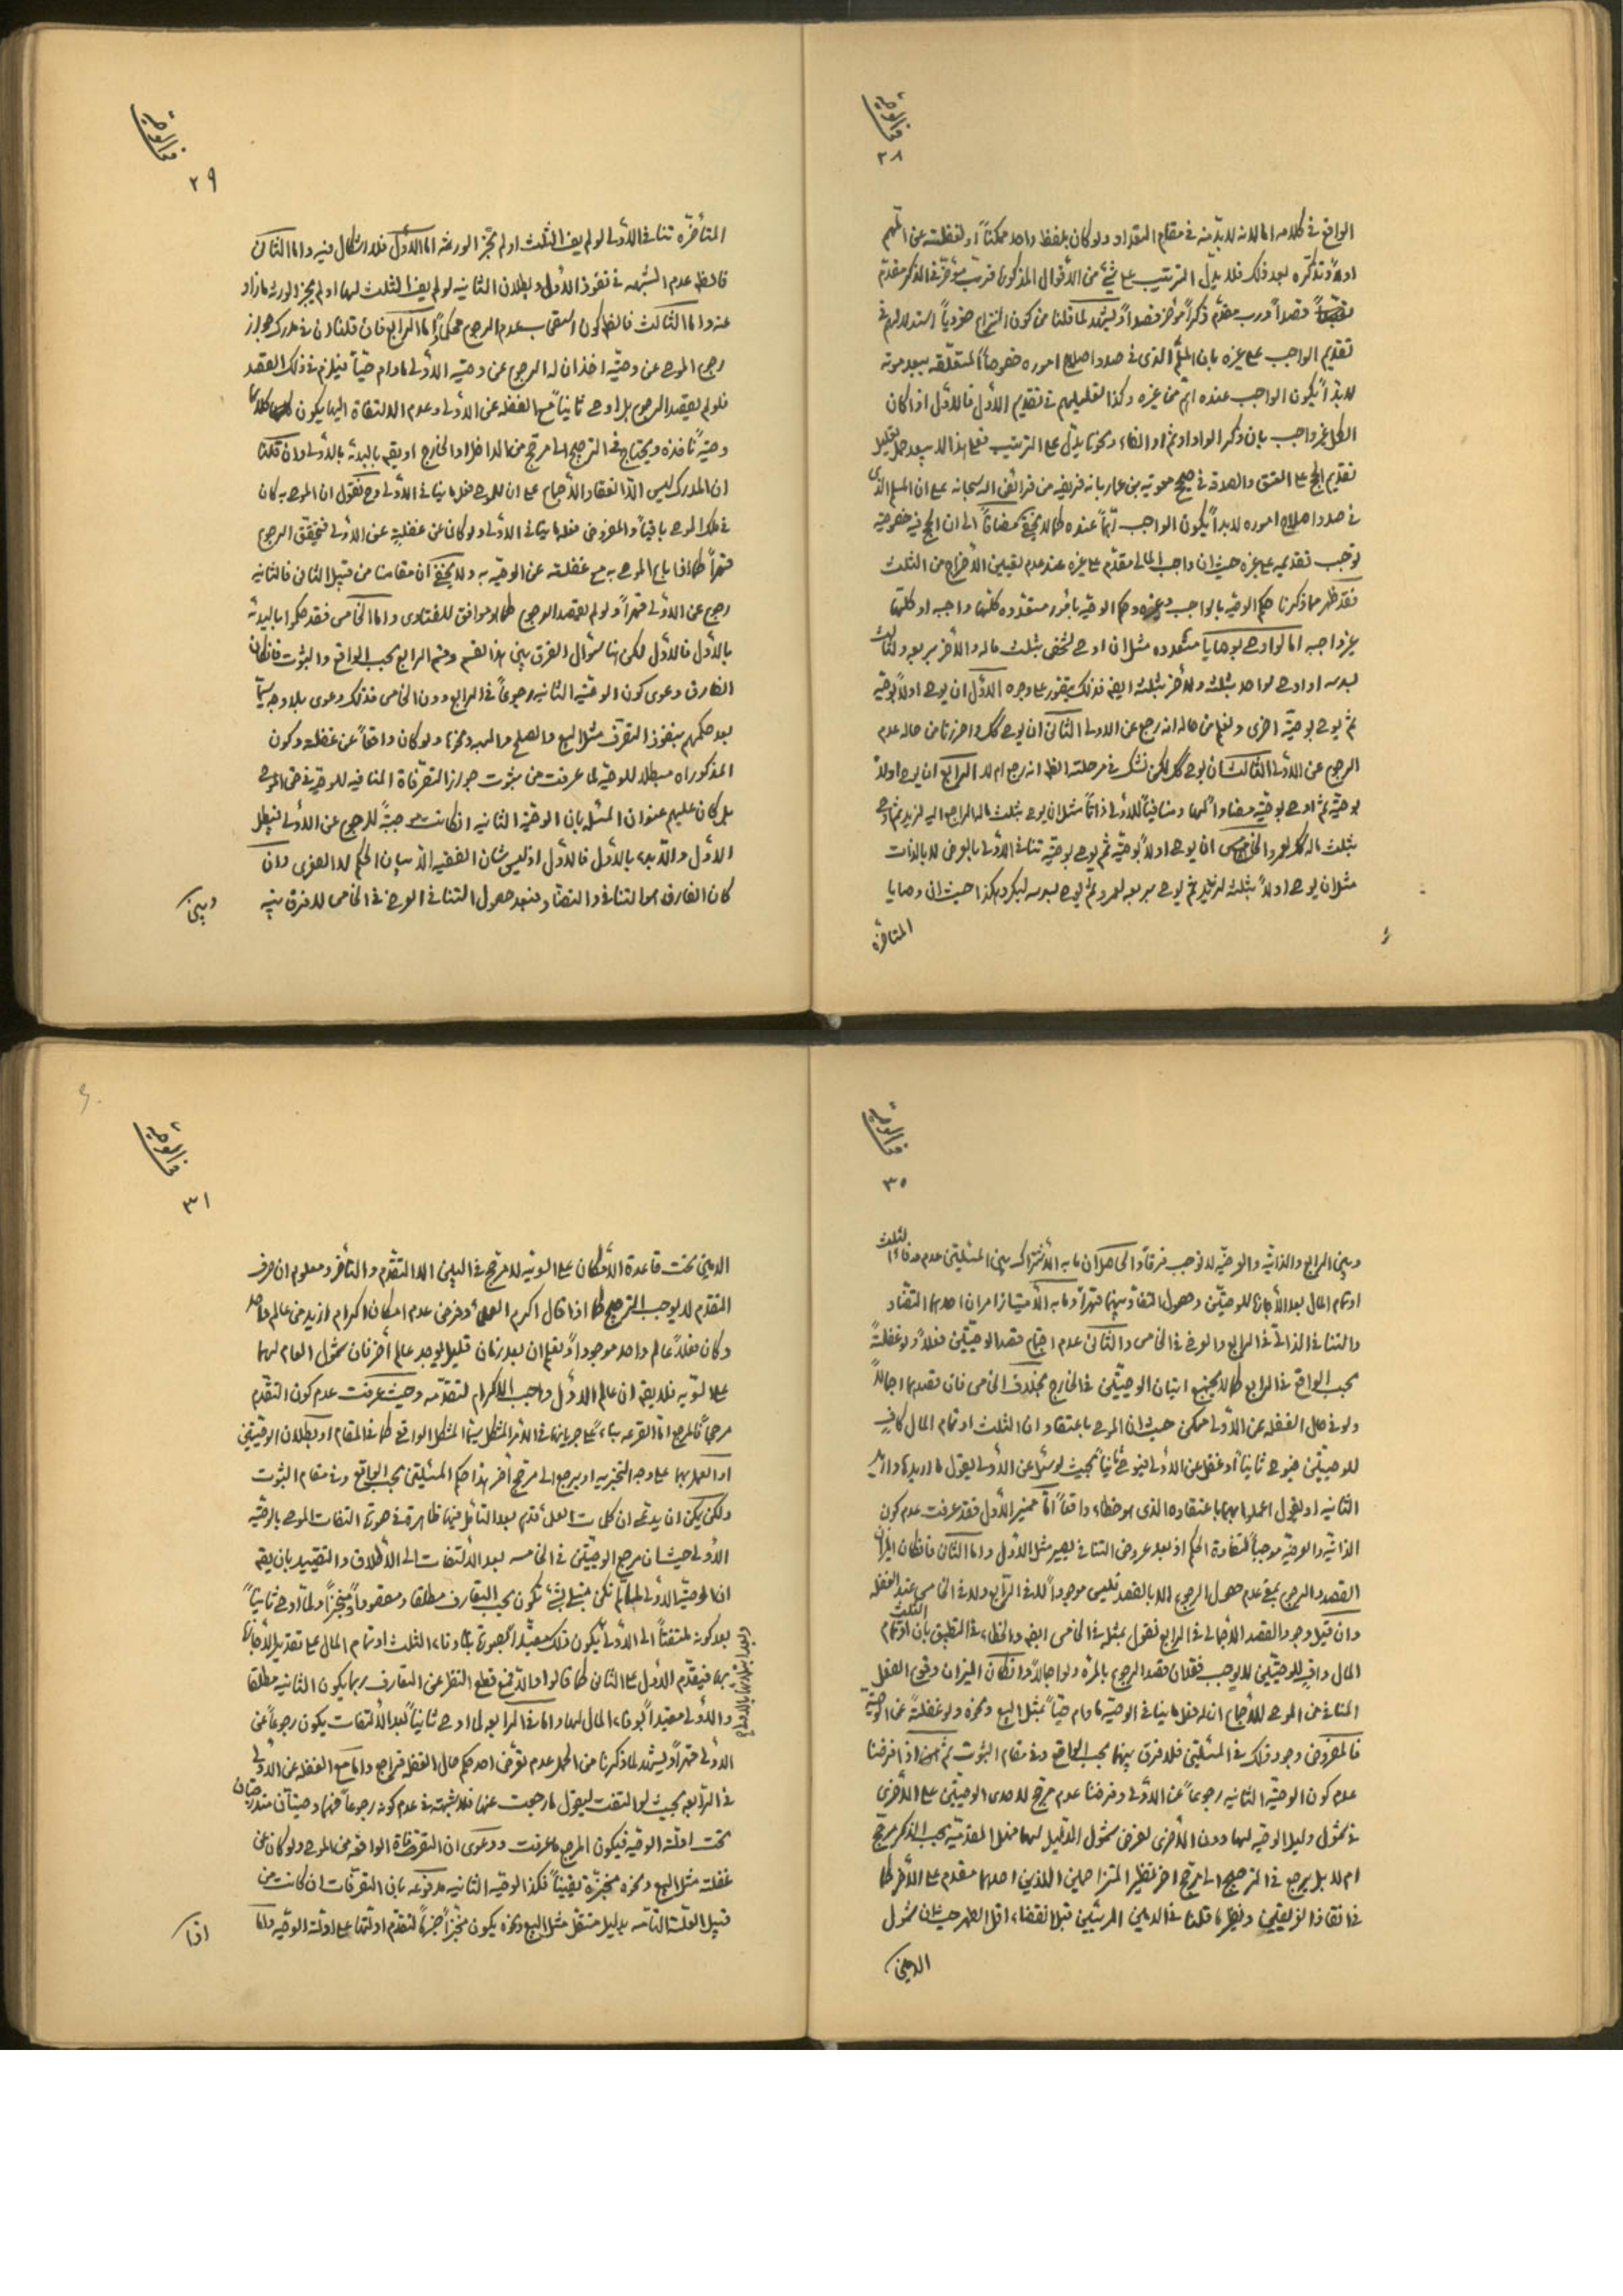 فی الوصیة
٢٨
الواقع فی کلامه اما لانه لا بدّ منه فی مقام التعداد ولو کان بلفظ واحد ممکناً او لغفلته عن الاهم
اولاً وتذکّره بعد ذلک فلا یدلّ الترتیب علی شیء من الاقوال المذکورة فربّ مؤخّر فی الذکر مقدّم
قصداً وربّ مقدّم ذکراً مؤخر قصداً ویشهد لما قلنا من کون النزاع صغرویاً استدلالهم فی
تقدیم الواجب علی غیره بان المسلم الذی فی صدد اصلاح اموره خصوصاً المتعلّقه ببعد موته
لا بدّ ان یکون الواجب عنده اهمّ من غیره وکذا تعلیلهم فی تقدیم الاول فالاول اذا کان
الکل غیر واجب بان ذکر الواو او ثم او الفاء ونحوها یدلّ علی الترتیب فعلی هذا لا یبعد حمل تعلیل
تقدیم الحج علی العتق والصدقة فی صحیح معویة بن عمار بانه فریضه من فرائض الله سبحانه علی ان المسلم الذی
فی صدد اصلاح اموره لا بد ان یکون الواجب اهمّاً عنده کما لا یخفی مضافاً الی ان الحج فیه خصوصیة
توجب تقدیمه علی غیره حیث ان واجب المالی مقدّم علی غیره عند عدم تعیین الاخراج من الثلث
فقد ظهر مما ذکرنا حکم الوصیّة بالواجب وغیره وحکم الوصیّة بامور متعدّده کلّها واجبه او کلّها
غیر واجبه اما لو اوصی بوصایا متعدده مثل ان اوصی لشخص بثلث ماله والاخر بربعه ولثالث
بسدسه او اوصی لواحد بثلثه ولاخر بثلثه ایضا فذلک یتصور علی وجوه الاوّل ان یوصی اولاً بوصیّة
ثم یوصی بوصیّة اخری ونعلم من حاله انه رجع عن الاولی الثانی ان یوصی کک واحرزنا من حاله عدم
الرجوع عن الاولی الثالث ان یوصی کک لکن نشک فی مرحلة الظ انه رجع ام لا الرابع ان یوصی اولاً
بوصیّة ثم اوصی بوصیّة مضادّاً لها ومنافیاً للاولی ذاتاً مثل ان یوصی بثلث ماله الراجع الیه لزید ثم اوصی
بثلث ماله کک لعمرو الخامس ان یوصی اولاً بوصیّة ثم یوصی بوصیّة تنافی الاولی بالعرض لا بالذات
مثل ان یوصی اولاً بثلثه لزید ثم یوصی بربعه لعمرو ثم یوصی بسدسه لبکر وهکذا حیث ان وصایا
المتاخره
فی الوصیة
٢٩
المتأخّره تنافی الاولی لو لم یف الثلث او لم تجز الورثه اما الاوّل فلا اشکال فیه واما الثانی
فالظ عدم الشبهه فی نفوذ الاول وبطلان الثانیه لو لم یف الثلث لهما او لم یجز الورثه ما زاد
عنه واما الثالث فالظ کون استصحاب عدم الرجوع محکماً اما الرابع فان قلنا ان فی مدرک جواز
رجوع الموصی عن وصیّته اخذ ان له الرجوع عن وصیته الاولی ما دام حیّاً فیلزم فی ذلک القصد
فلو لم یقصد الرجوع بل اوصی ثانیاً مع الغفله عن الاولی وعدم الالتفاة الیها یکون کلاهما
وصیّة نافذه ویحتاج فی الترجیح الی مرجّح من الداخل او الخارج او یقع بالبدئة بالاولی وان قلنا
ان المدرک لیس الّا انعقاد الاجماع علی ان للموصی فعل ما ینافی الاولی وح فنقول ان الموصی به کان
فی ملک الموصی باقیاً والمفروض فعله ما ینافی الاولی ولو کان عن غفلة عن الاولی فیتحقّق الرجوع
قهراً کما اذا باع الموصی به مع غفلته عن الوصیّه به ولا یخفی ان مقامنا من قبیل الثانی فالثانیه
رجوع عن الاولی قهراً ولو لم یقصد الرجوع کما هو موافق للفتاوی واما الخامس فقد حکموا بالبدئة
بالاوّل فالاوّل لکن هنا سئوال الفرق بین هذا القسم وقسم الرابع بحسب الواقع والثبوت فانّ کان
الفارق دعوی کون الوصیّة الثانیه رجوعاً فی الرابع دون الخامس فذلک دعوی بلا وجه سیّما
بعد حکمهم بنفوذ التصرّف مثل البیع والصلح والهبه ونحوها ولو کان واقعاً عن غفلة وکون
المذکوراه مبطلا للوصیّة لما عرفت من ثبوت جواز التصرّفاة المنافیه للوصیّة فی حق الموصی
بل کان علیهم عنوان المسئله بان الوصیّة الثانیه ان کانت موجبةً للرجوع عن الاولی فیبطل
الاوّل والّا بدء بالاول فالاول اذ لیس شان الفقیه الّا بیان الحکم لا الصغری وان
کان الفارق هو التنافی والتضادّ فبعد حصول التنافی العرضی فی الخامس لا فرق بینه
وبین
فی الوصیة
٣٠
وبین الرابع والذاتیّة والعرضیّه لا توجب فرقاً والحاصل ان ما به الاشتراک بین المسئلتین عدم وفاء الثلث
او تمام المال بعد الاجازة للوصیّتین وحصول التضادّ بینهما قهراً وما به الامتیاز امران احدهما التضادّ
والتنافی الذاتی فی الرابع والعرضی فی الخامس والثانی عدم اجتماع قصد الوصیّتین فعلاً ولو غفلةً
بحسب الواقع فی الرابع کما لا یجتمع اتیان الوصیّتین فی الخارج بخلاف الخامس فان قصدهما اجمالاً
ولو فی حال الغفله عن الاولی ممکن حیث ان الموصی باعتقاد ان الثلث او تمام المال کافٍ
للوصیّتین فیوصی ثانیاً او غفل عن الاولی فیوصی ثانیاً بحیث لو سئل عن الاولی یقول ما ارید واوارید
الثانیه او یقول اعملوا بهما باعتقاده الذی هو خطاء واقعاً اما ممیّز الاول فقد عرفت عدم کون
الذاتیّة والعرضیّه موجباً لتفاوة الحکم اذ بعد عروض التنافی یصیر مثل الاول واما الثانی فان کان المراد
القصد والرجوع بمعنی عدم حصول الرجوع الا بالقصد فلیس موجوداً لا فی الرابع ولا فی الخامس عند الغفله
وان قیل وجود القصد الاجمالی فی الرابع فنقول بمثله فی الخامس ایضا والخطاء فی التطبیق بان الثلث او تمام
المال وافیةٍ للوصیّتین لا یوجب فقدان قصد الرجوع بالمرّة ولو اجمالاً وان کان المیزان وقوع الفعل
المنافی من الموصی للاجماع ان له فعل ما ینافی الوصیّة ما دام حیّاً بمثل البیع ونحوه ولو غفلةً عن الوصیّة
فالمفروض وجود ذلک فی المسئلتین فلا فرق بینهما بحسب الواقع وفی مقام الثبوت ثم اذا فرضنا
عدم کون الوصیّة الثانیه رجوعاً عن الاولی وفرضنا عدم مرجّح لاحدی الوصیّتین علی الاخری
فی شمول دلیل الوصیّه لها دون الاخری لفرض شمول الدلیل لهما فهل المقدمیّة بحسب الذکر مرجّح
ام لا بل یرجع فی الترجیح الی مرجّح اخر نظیر المتزاحمین اللذین احدهما مقدم علی الاخر کما
فی انقاذ الغریقین ونظیر ما قلنا فی الدمین المرئیّین قبل انقضاء اقل الطهر حیث ان شمول
الدمین
فی الوصیة
٣١
الدمین تحت قاعدة الامکان علی السویّه لا مرجّح فی البین الا التقدّم والتأخّر ومعلوم ان صرف
التقدم لا یوجب الترجیح کما اذا قال اکرم العلماء وفرض عدم امکان اکرام ازید من عالم واحد
وکان فعلاً عالم واحد موجوداً ونعلم ان بعد زمان قلیل یوجد عالم اخر فان شمول العام لهما
علی السّویّه فلا یقع ان عالم الاوّل واجب الاکرام لتقدّمه وحیث عرفت عدم کون التقدّم
مرجحاً فالمرجع امّا القرعه بناءً علی جریانها فی الامر المشکل سیّما المشکل الواقعی کما فی المقام او بطلان الوصیّتین
او العمل بهما علی وجه التخییر او یرجع الی مرجّح اخر هذا حکم المسئلتین بحسب الواقع وفی مقام الثبوت
ولکن یمکن ان یدعی ان کلمات العلماء قدّم بعد التامّل فیها ظاهرة فی صورة التفات الموصی بالوصیّه
الاولی حیث ان مرجع الوصیّتین فی الخامسه بعد الالتفات الی الاطلاق والتقیید بان یقع
ان الوصیّة الاولی لما لم تکن مبتنیة بشیء تکون بحسب التعارف مطلقا ومقصوداً منجّزاً ولمّا اوصی ثانیاً
بعد کونه ملتفتاً الی الاولی یکون ذلک مقیّداً بصورة وفاء الثلث او تمام المال علی تقدیر الاجازة
بهما فیقدّم الاول علی الثانی کما قالوا والّا فمع قطع النظر عن التعارف ربما یکون الثانیه مطلقا
والاولی مقیداً بوفاء المال لهما واما فی الرابعه لما اوصی ثانیاً بعد الالتفات یکون رجوعاً عن
الاولی قهراً ویشهد لما ذکرنا من الحمل عدم تعرّض احد حکم حال الغفله فراجع واما مع الغفله عن الاولی
فی الرابعه بحیث لو التفت لیقول ما رجعت عنها فلا شبهة فی عدم کونه رجوعاً فهما وصیّتان متضادتان
تحت ادلّة الوصیّة فیکون المرجع ما عرفت ودعوی ان التصرّفاة الواقعه من الموصی ولو کان عن
غفلة مثل البیع ونحوه منجّزة یقیناً فکذا الوصیّة الثانیه مدفوعه بان التصرّفات ان کانت من
قبیل العلّة التامّه بدلیل مستقل مثل البیع ونحوه یکون منجّزاً جزماً لتقدّم ادلّتها علی ادلّة الوصیّة واما
اذا